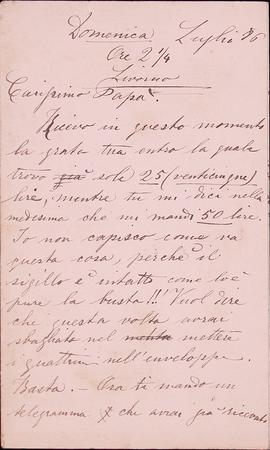 Domenica Luglio 86
Ore 2 1/4
Livorno
Carissimo Papà.
Ricevo in questo momento
la grata tua entro la quale
trovo già sole 25 (venticinque)
lire, mentre tu mi dici nella
medesima che mi mandi 50 lire.
Io non capisco come va
questa cosa, perchè il
sigillo è intatto come lo è
pure la busta!!! Vuol dire
che questa volta avrai
sbagliato nel mettere
i quattrini nell'enveloppe.
Basta. - Ora ti mando un
telegramma che avrai già ricevuto